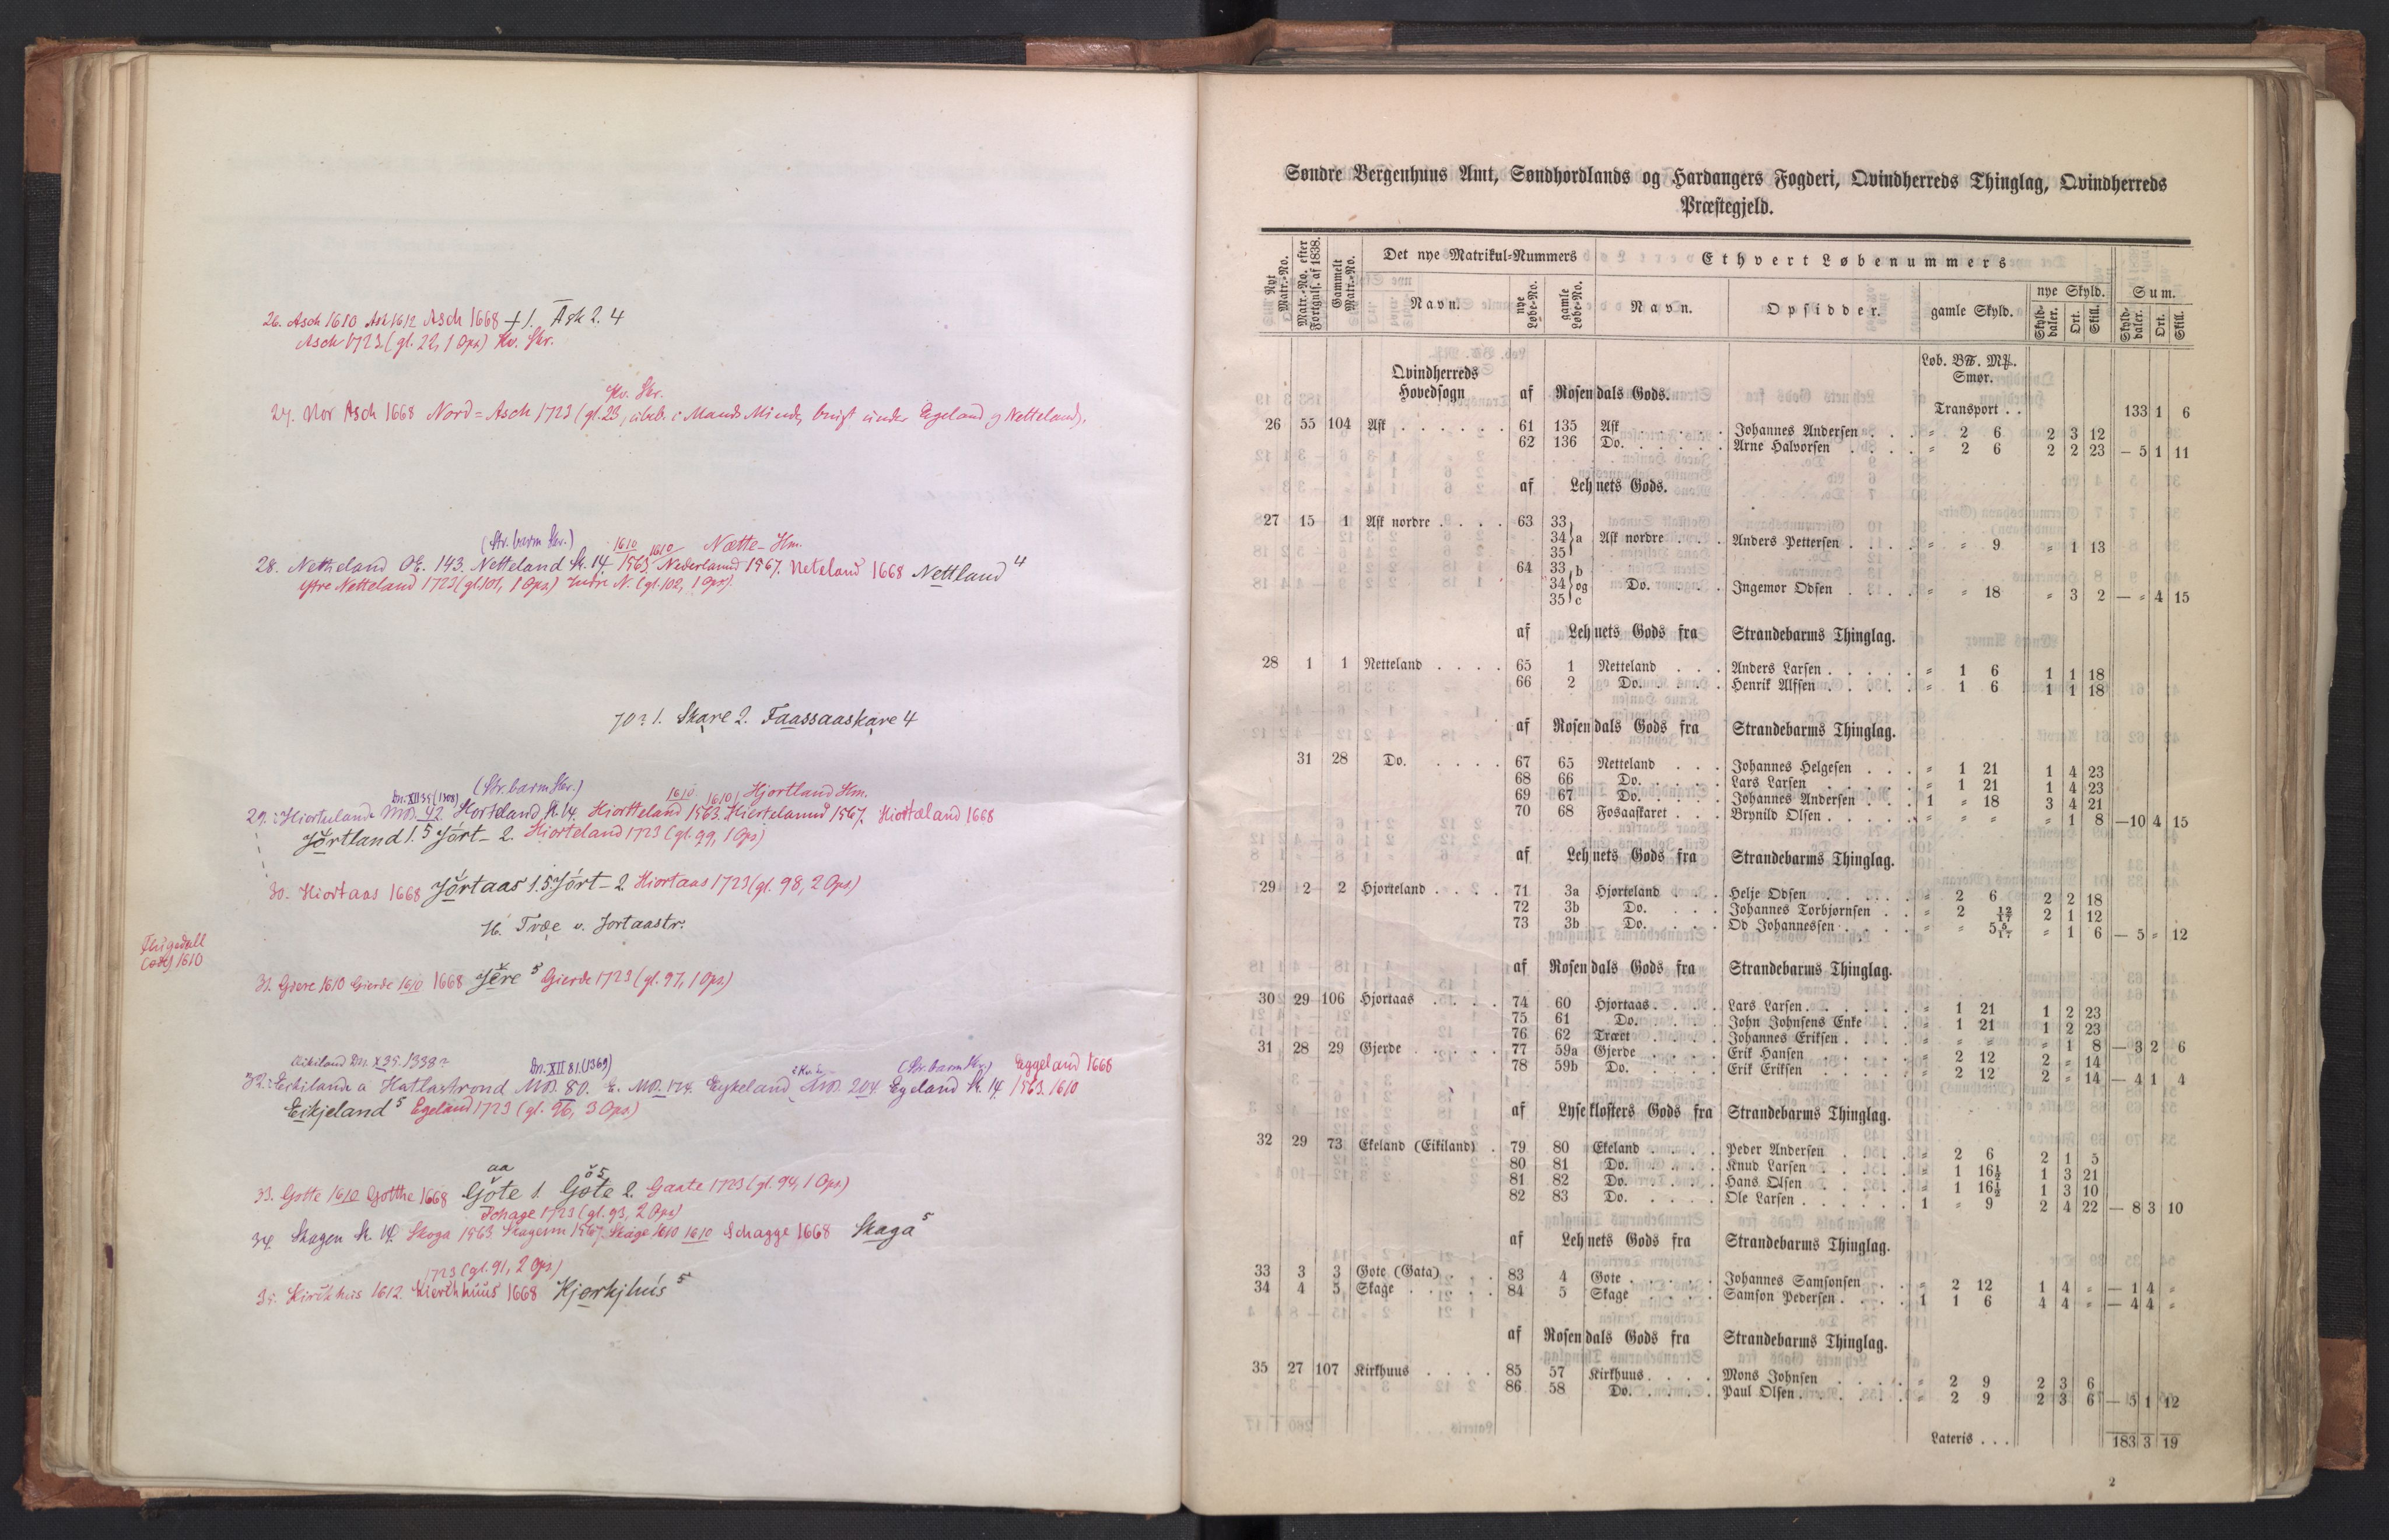 26. Asch 1610 Ash 1612 Asch 1668 + 1. Ask 2. 4
Asch 1723 (gl. 22, 1 Ops.) Kv. Skr.
Kv. Skr.
27. Nor Asch 1668 Nord-Asch 1723 (gl. 23, ubeb. i Mands Minde, brugt under Egeland og Netteland).
(Str.barm Skr.) 1610 1610 Nætte- Hm.
28. Netteland OE. 143. Netteland St. 14. 1563 Nederlannd 1567. Neteland 1668 Nettland 4
Ytre Netteland 1723 (gl. 101, 1 Ops.) Indre N. (gl. 102, 1 Ops.)
70? 1. Skare 2. Faassaaskare 4
Dn. XII 35 (1308) (Str.barm Skr.) 1610 1610 Hjortland Hm.
29. Hiortuland MD. 42. Horteland St. 14. Hiortteland 1563. Hiertelannd 1567. Hiortæland 1668
Jørtland 1. 5 Jórt- 2. Hiorteland 1723 (gl. 99, 1 Ops)
30. Hiortaas 1668 Jørtaas 1. 5. Jórt- 2 Hiortaas 1723 (gl. 98, 2 Ops)
76. Tvæe v. Jortaastr.
(øde) 1610
31. Giere 1610 Gierde 1610 1668 Jere 5 Gierde 1723 (gl. 97, 1 Ops.)
Eikiland Dn. X 35. 1338? Dn. XII 81. (1369) (Str.barm Skr.) Eggeland 1668
32. Eikilande a Hatlastrond MD. 80. E. MD. 174. Eykeland MD. 204. Egeland St. 14. 1563. 1610
Eikjeland 5 Egeland 1723 (gl. 96, 3 Ops.)
aa ŏ 5
33. Gotte 1610 Gotthe 1668 Gŏte 1. Gote 2. Gaate 1723 (gl. 94, 1 Ops.)
Schage 1723 (gl. 93, 2 Ops)
34. Skagen St. 14. Skoga 1563 Skagenn 1567. Skage 1610 1610 Schagge 1668 Skaga 5
1723 (gl. 91, 2 Ops.)
35. Kirckhus 1612. Kierchhuus 1668 Kjerkjhus 5
Søndre Bergenhuus Amt, Søndhordlands og Hardangers Fogderi, Qvindherreds Thinglag, Qvindherreds
Præstegjeld.
Nyt Matr.-No.
Matr.-No. efter Fortgnls. af 1838.
Gammelt Matr.-No.
Det nye Matrikul-Nummers
Ethvert Løbenummers
Navn. nye Løbe-No. gamle Løbe-No. Navn. Opsidder. gamle Skyld. nye Skyld. Sum.
Skylddaler. Ort. Skill. Skylddaler. Ort. Skill.
Løb. B℔. M℔.
Smør.
Qvindherreds
Hovedsogn af Rosendals Gods.
Transport . . 133 1 6
26 55 104 Ask . . . . . . 61 135 Ask . . . . . Johannes Andersen . . . " 2 6 2 3 12
62 136 Do. . . . . . Arne Halvorsen . . . . " 2 6 2 2 23 — 5 1 11
af Lehnets Gods.
27 15 1 Ask nordre . . . . 63 33
34 } a Ask nordre . . . Anders Pettersen . . . . " " 9 " 1 13
35
64 33 b
34 } og Do. . . . . Ingemor Odsen . . . . " " 18 " 3 2 — " 4 15
35 c
af Lehnets Gods fra Strandebarms Thinglag.
28 1 1 Netteland . . . . 65 1 Netteland . . . Anders Larsen . . . . . " 1 6 1 1 18
66 2 Do. . . . . Henrik Alfsen . . . . . " 1 6 1 1 18
af Rosendals Gods fra Strandebarms Thinglag.
31 28 Do. . . . . 67 65 Netteland . . . Johannes Helgesen . . . " 1 21 1 4 23
68 66 Do. . . . . Lars Larsen . . . . . " 1 21 1 4 23
69 67 Do. . . . . Johannes Andersen . . . 1 " 18 3 4 21
70 68 Fosaaskaret . . . Brynild Olsen . . . . . " " " " 1 8 — 10 4 15
af Lehnets Gods fra Strandebarms Thinglag.
29 2 2 Hjorteland . . . . 71 3a Hjorteland . . . Helje Odsen . . . . . " 2 6 2 2 18
72 3b Do. . . . Johannes Torbjørnsen . . " 2 12/17 2 1 12
73 3b Do. . . . Od Johannessen . . . . " " 5 5/17 " 1 6 — 5 " 12
af Rosendals Gods fra Strandebarms Thinglag.
30 29 106 Hjortaas . . . . 74 60 Hjortaas . . . . Lars Larsen . . . . . " 1 21 1 2 23
75 61 Do. . . . . John Johnsens Enke . . " 1 21 1 2 23
76 62 Træet . . . . Johannes Eriksen . . . . " " " " 1 8 — 3 2 6
31 28 29 Gjerde . . . . . 77 59a Gjerde . . . . Erik Hansen . . . . . " 2 12 2 " 14
78 59b Do. . . . . Erik Eriksen . . . . . " 2 12 2 " 14 — 4 1 4
af Lyseklosters Gods fra Strandebarms Thinglag.
32 29 73 Ekeland (Eikiland) . 79 80 Ekeland . . . . Peder Andersen . . . . " 2 6 2 1 5
80 81 Do. . . . . Knud Larsen . . . . . " 1 16½ 1 3 21
81 82 Do. . . . . Hans Olsen . . . . . " 1 16½ 1 3 10
82 83 Do. . . . . Ole Larsen . . . . . . 1 " 9 2 4 22 — 8 3 10
af Lehnets Gods fra Strandebarms Thinglag.
33 3 3 Gote (Gata) . . . 83 4 Gote . . . . . Johannes Samsonsen . . " 2 12 1 4 " — 1 4 "
34 4 5 Skage . . . . . 84 5 Skage . . . . Samson Pedersen . . . . 1 1 6 4 4 " — 4 4 "
af Rosendals Gods fra Strandebarms Thinglag.
35 27 107 Kirkhuus . . . . 85 57 Kirkhuus . . . . Mons Johnsen . . . . " 2 9 2 3 6
86 58 Do. . . . . Paul Olsen . . . . . . " 2 9 2 3 6 — 5 1 12
Lateris . . . 183 3 19
2